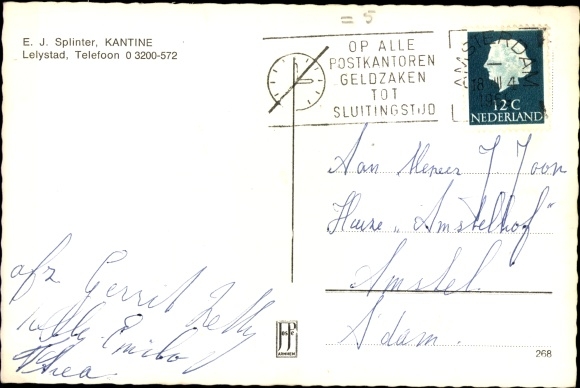 = 5
E. J. Splinter, KANTINE
Lelystad, Telefoon 0 3200-572
OP ALLE
POSTKANTOREN
GELDZAKEN
TOT
SLUITINGSTIJD
AMSTERDAM
12 C
NEDERLAND
Aan Meneer J Joon
Huize „Amstelhof"
Amstel.
A'dam.
afz Gerrit Nelly
Willy. Emilo
Thea
JosPé
ARNHEM
268